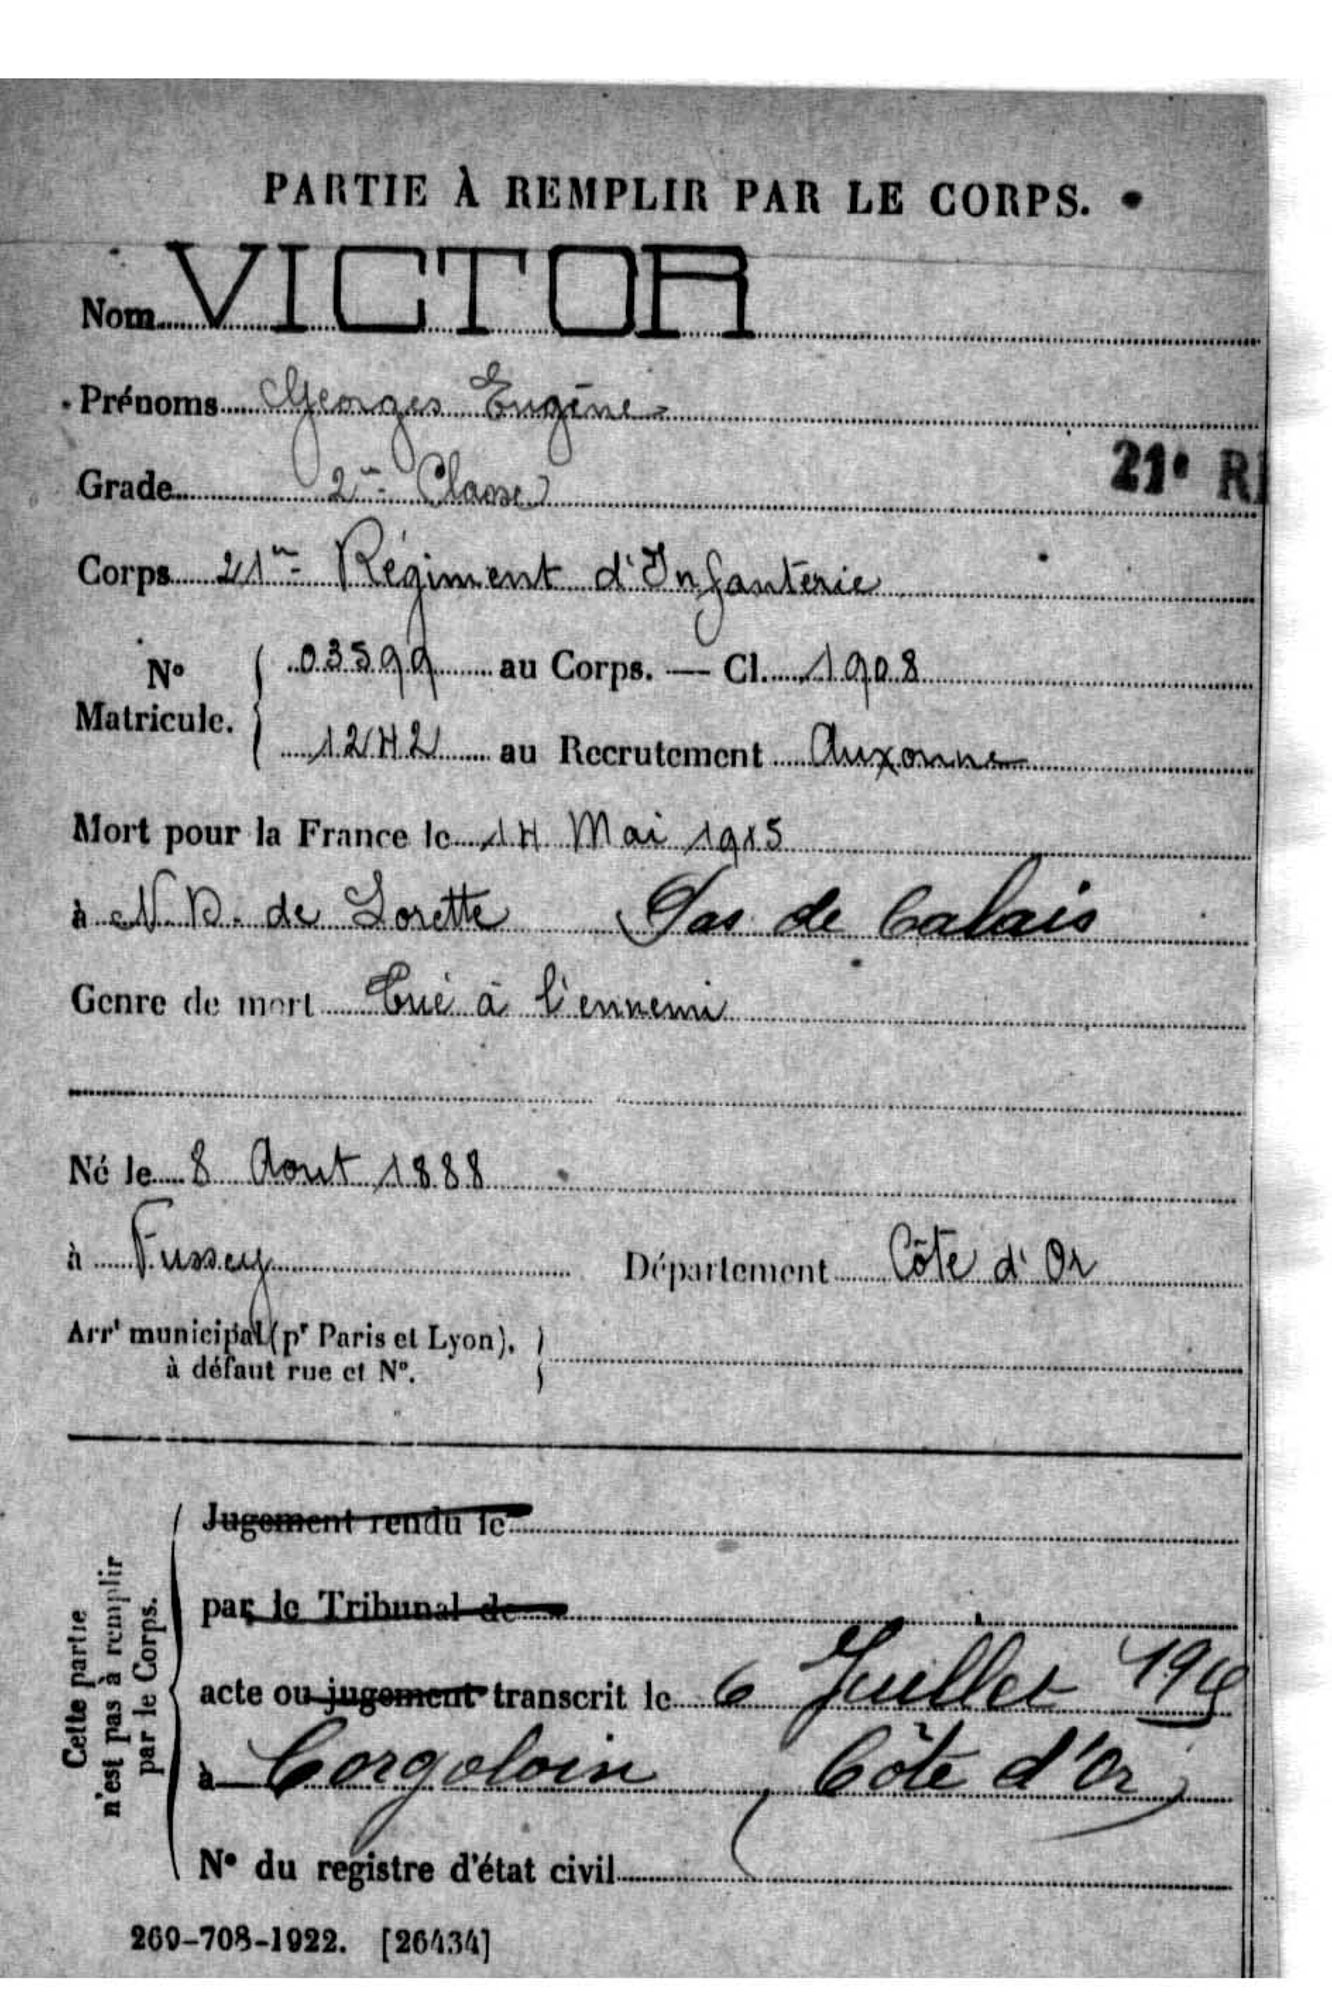 PARTIE À REMPLIR PAR LE CORPS.
Nom VICTOR
Prénoms Georges Eugène
Grade 2me Classe
21e RI
Corps 21me Régiment d'Infanterie
No Matricule. 03599 au Corps. — Cl. 1908
1242 au Recrutement Auxonne
Mort pour la France le 14 Mai 1915
à N. D. de Lorette Pas de Calais
Genre de mort Tué à l'ennemi
Né le 8 Aout 1888
à Fussey Département Côte d'Or
Arrt municipal (pr Paris et Lyon),
à défaut rue et No.
Cette partie
n'est pas à remplir
par le Corps.
Jugement rendu le
par le Tribunal de
acte ou jugement transcrit le 6 Juillet
à Corgoloin (Côte d'Or)
No du registre d'état civil
269-708-1922. [26434]